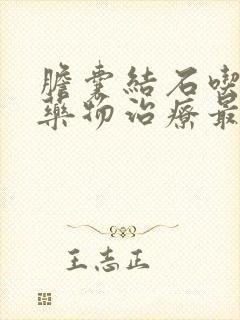 膽囊結石喫
藥物治療最
王志正